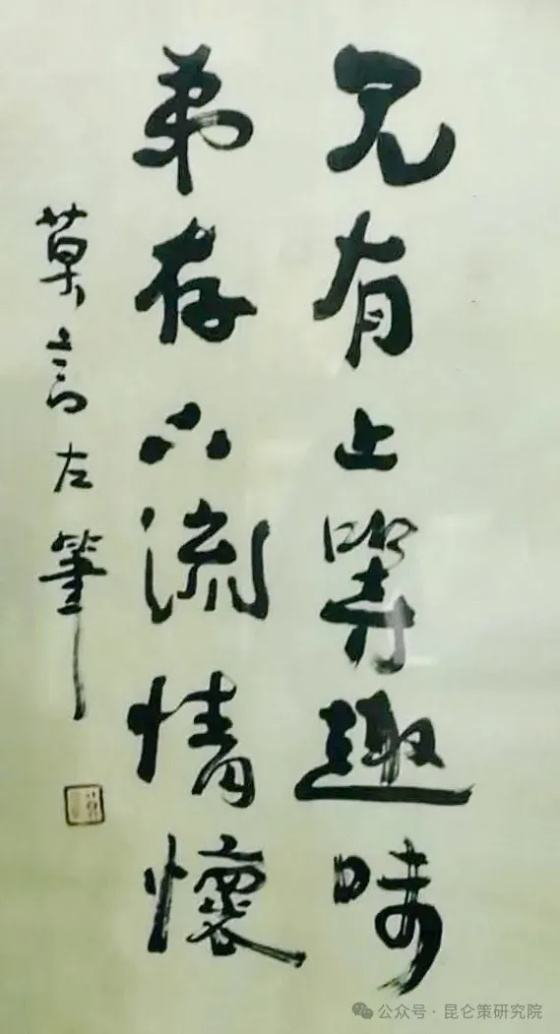 兄有上等趣味
弟存下流情懷
莫言左筆
公众号·昆仑策研究院